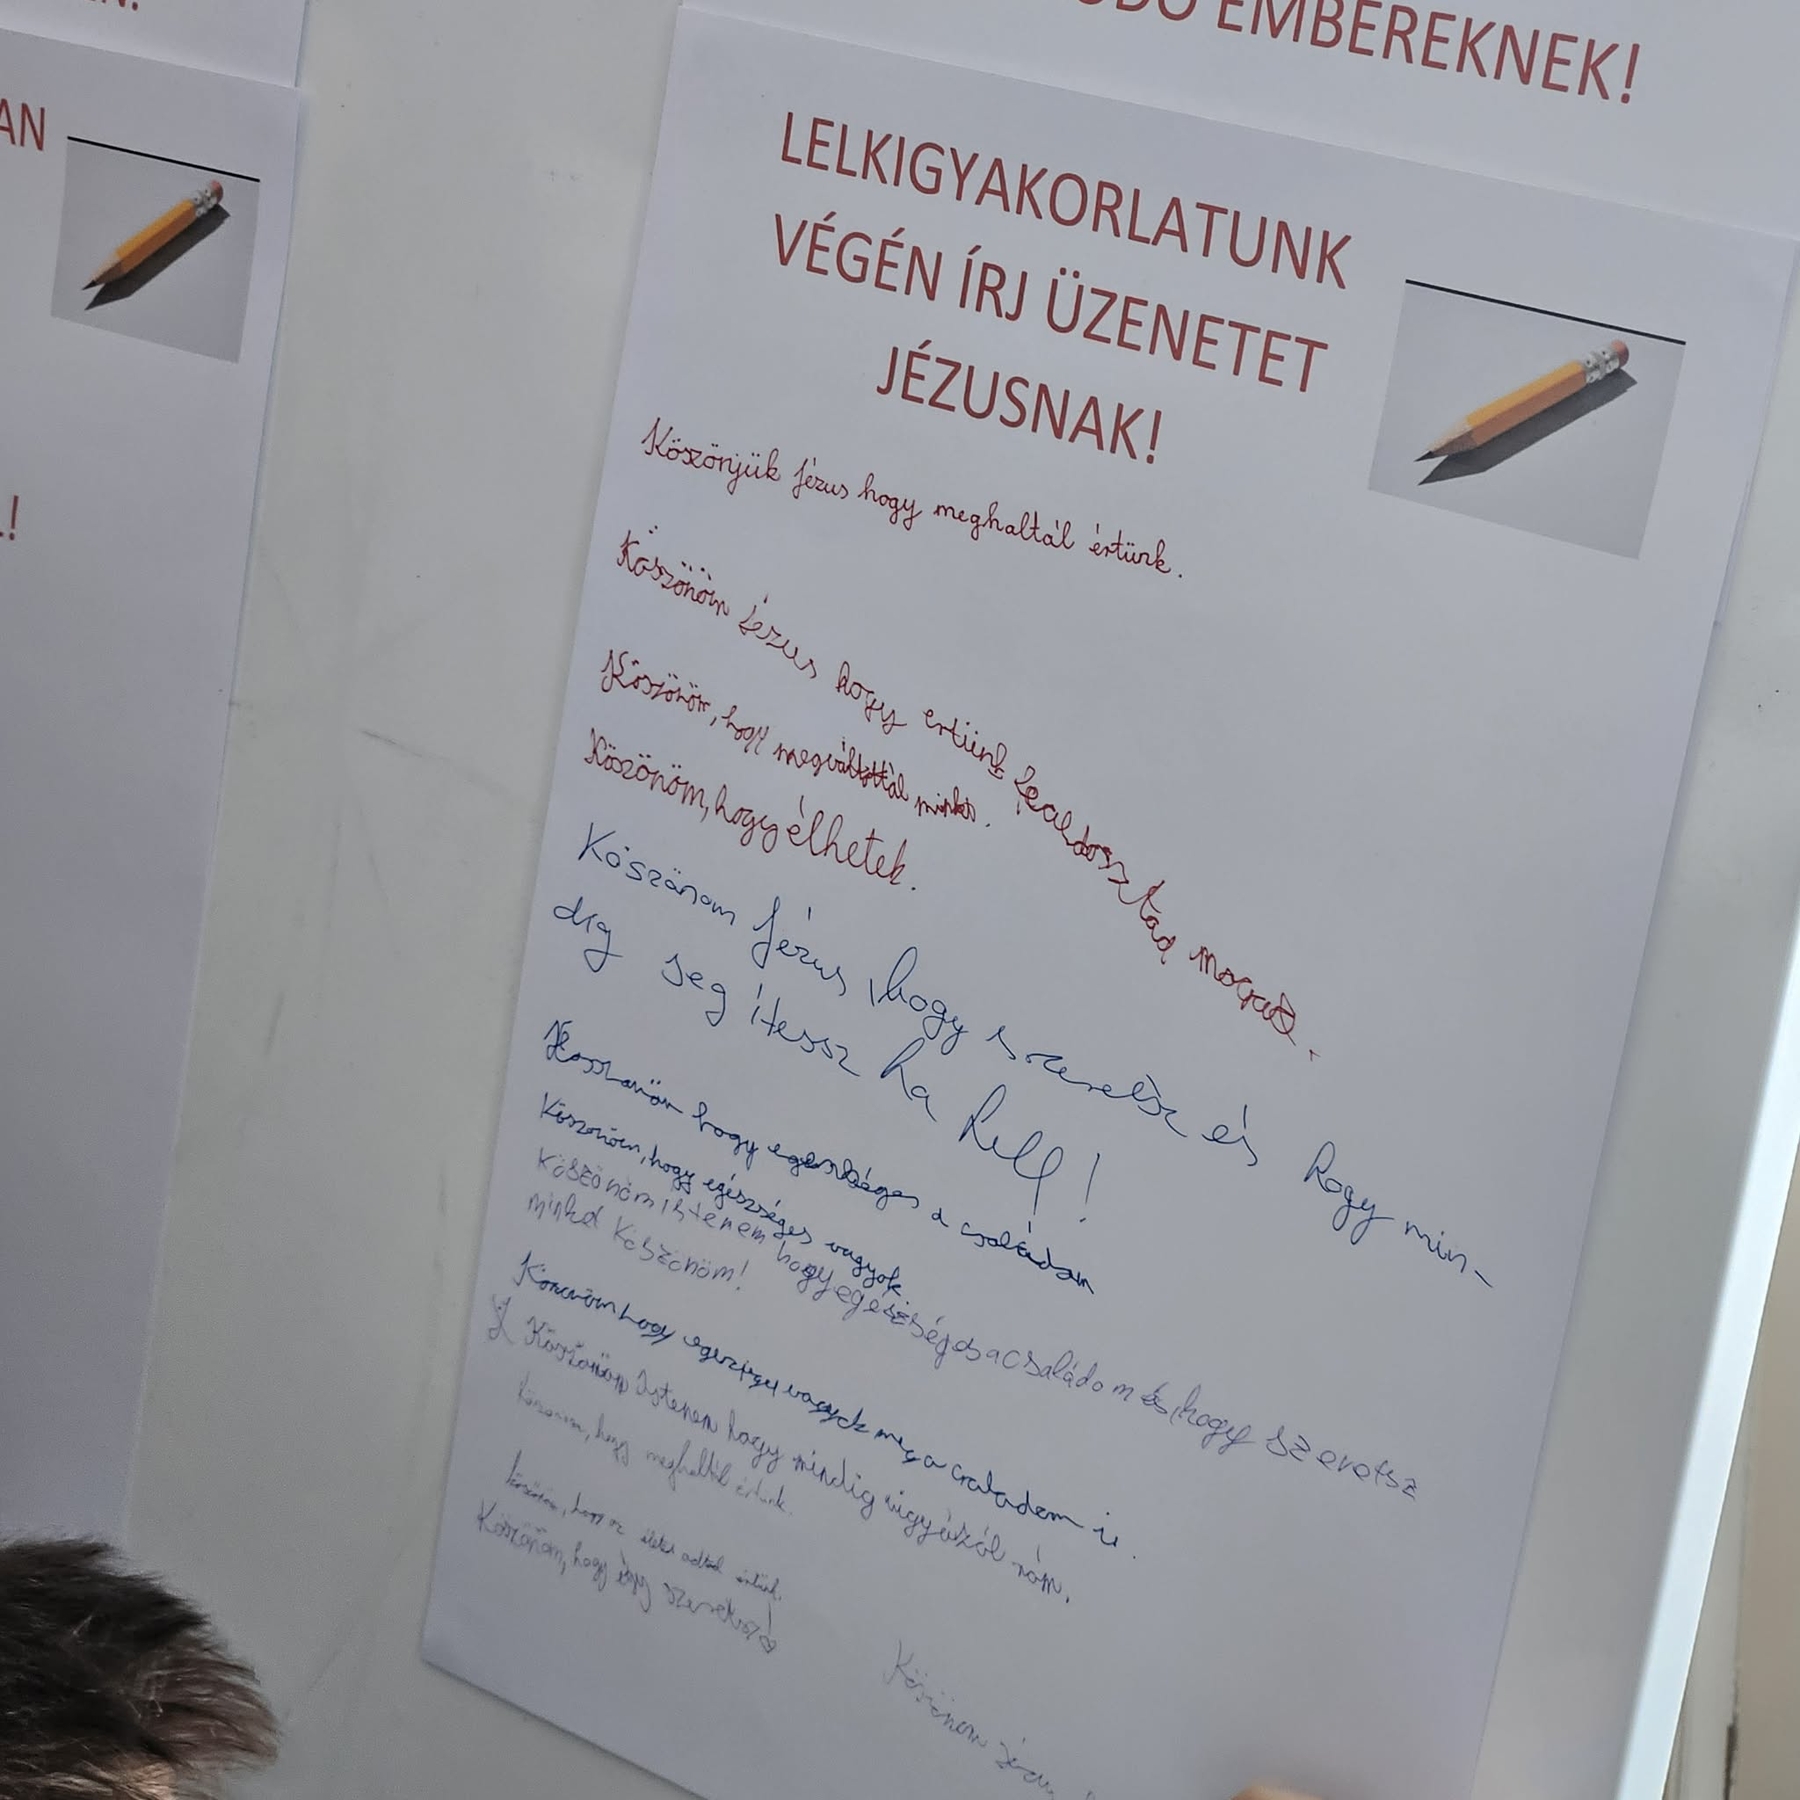 AN
!
ÓDÓ EMBEREKNEK!
LELKIGYAKORLATUNK
VÉGÉN ÍRJ ÜZENETET
JÉZUSNAK!
Köszönjük Jézus hogy meghaltál értünk.
Köszönöm Jézus hogy értünk feláldosztad magad.
Köszönöm, hogy megváltottál minket.
Köszönöm, hogy élhetek.
Köszönöm Jézus, hogy szeretsz és hogy min-
dig segítessz ha kell!
hogy egeszséges a családom
Köszönöm, hogy egészséges vagyok.
Köszönöm istenem hogy egészséges a családom és, hogy szeretsz
minket Köszönöm!
hogy vagyok meg a családom is.
Köszönöm Istenem hogy mindig vigyázól rám.
Köszönöm, hogy meghaltál értünk.
Köszönöm, hogy az életed adtad értünk.
Köszönöm, hogy így
Köszönöm Jézus